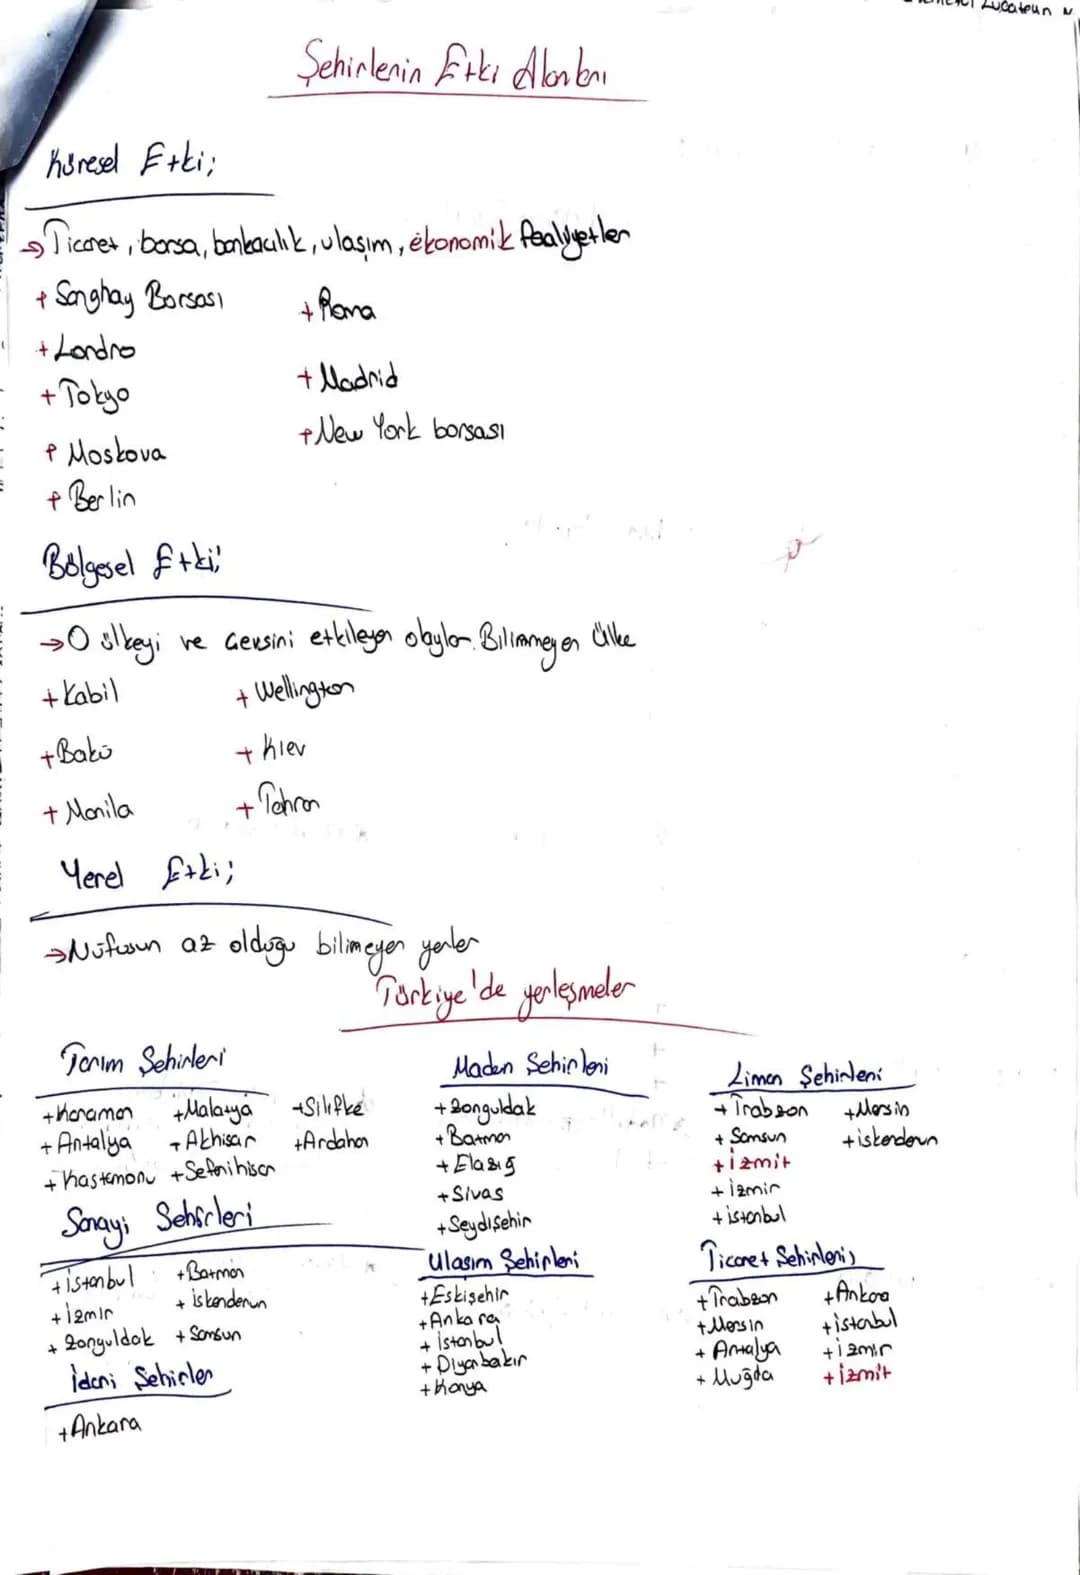 Şehirlerin Etki Alanları
Küresel Etki;
→ Ticaret, borsa, bankacılık, ulaşım, ekonomik faaliyetler
+ Songhay Borsası
+ Roma
+ Londra
+ Madrid
+ Tokyo
+ New York borsası
+ Moskova
+ Berlin
Bölgesel Etki;
→ O ülkeyi ve çevresini etkileyen olaylar. Bilinmeyen Ülke
+ Kabil
+ Wellington
+ Bakü
+ Kiev
+ Manila
+ Tahran
Yerel Etki;
→ Nüfusun az olduğu bilimeyen yerler
Türkiye'de yerleşmeler
Tarım Şehirleri
+ Karaman + Malatya + Silifke
+ Antalya + Akhisar + Ardahan
+ Kastamonu + Seferihisar
Maden Şehirleri
+ Zonguldak
+ Batman
+ Elazığ
+ Sivas
+ Seydişehir
Liman Şehirleri
+ Trabzon + Mersin
+ Samsun + iskenderun
+ izmit
+ izmir
+ istanbul
Sanayi Şehirleri
+ istanbul + Batman
+ izmir + iskenderun
+ Zonguldak + Samsun
Ulaşım Şehirleri
+ Eskişehir
+ Ankara
+ istanbul
+ Diyarbakır
+ Konya
Ticaret Şehirleri;
+ Trabzon + Ankara
+ Mersin + istanbul
+ Antalya + izmir
+ Muğda + izmit
İdari Şehirler
+ Ankara